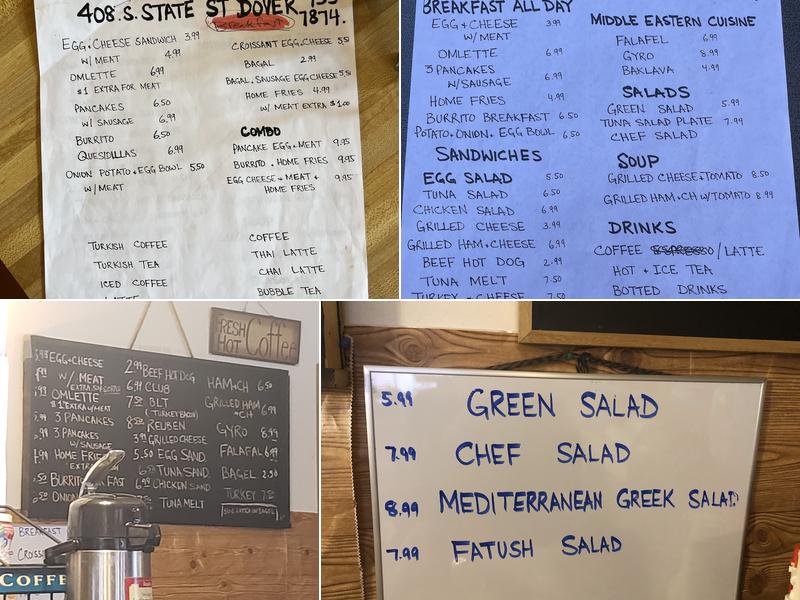 408. S. STATE ST DOVER
7874.
Breakfast
EGG + CHEESE SANDWICH 3.99
W/ MEAT 4.99
OMLETTE 6.99
$1 EXTRA FOR MEAT
PANCAKES 6.50
W/ SAUSAGE 6.99
BURRITO 6.50
QUESIDILLAS 6.99
ONION POTATO + EGG BOWL 5.50
W/ MEAT
TURKISH COFFEE
TURKISH TEA
ICED COFFEE
LATTE
CROISSANT EGG + CHEESE 5.50
BAGAL 2.99
BAGAL, SAUSAGE EGG CHEESE 5.50
HOME FRIES 4.99
W/ MEAT EXTRA $1.00
COMBO
PANCAKE EGG + MEAT 9.95
BURRITO + HOME FRIES 9.95
EGG CHEESE + MEAT + 9.95
HOME FRIES
COFFEE
THAI LATTE
CHAI LATTE
BUBBLE TEA
BREAKFAST ALL DAY
EGG + CHEESE 3.99
W/ MEAT
OMLETTE 6.99
3 PANCAKES
W/ SAUSAGE 6.99
HOME FRIES 4.99
BURRITO BREAKFAST 6.50
POTATO, ONION, EGG BOWL 6.50
SANDWICHES
EGG SALAD 5.50
TUNA SALAD 6.50
CHICKEN SALAD 6.99
GRILLED CHEESE 3.99
GRILLED HAM + CHEESE 6.99
BEEF HOT DOG 2.99
TUNA MELT 7.50
TURKEY + CHEESE 7.50
MIDDLE EASTERN CUISINE
FALAFEL 6.99
GYRO 8.99
BAKLAVA 4.99
SALADS
GREEN SALAD 5.99
TUNA SALAD PLATE 7.99
CHEF SALAD
SOUP
GRILLED CHEESE + TOMATO 8.50
GRILLED HAM + CH W/ TOMATO 8.99
DRINKS
COFFEE /LATTE
HOT + ICE TEA
BOTTED DRINKS
FRESH
HOT Coffee
EGG + CHEESE
W/ MEAT
OMLETTE
$1 EXTRA W/ MEAT
3 PANCAKES
3 PANCAKES
W/ SAUSAGE
HOME FRIES
EXTRA
BURRITO FAST
ONION
2.99 BEEF HOT DOG
6.99 CLUB
7.50 BLT
(TURKEY BACON)
REUBEN
3.99 GRILLED CHEESE
5.50 EGG SAND.
TUNA SAND
6.99 CHICKEN SAND
TUNA MELT
HAM + CH 6.50
GRILLED HAM
+ CH 6.99
GYRO 8.99
FALAFAL 6.99
BAGEL 2.50
TURKEY
BREAKFAST
CROISS
COFFE
5.99 GREEN SALAD
7.99 CHEF SALAD
8.99 MEDITERRANEAN GREEK SALAD
7.99 FATUSH SALAD